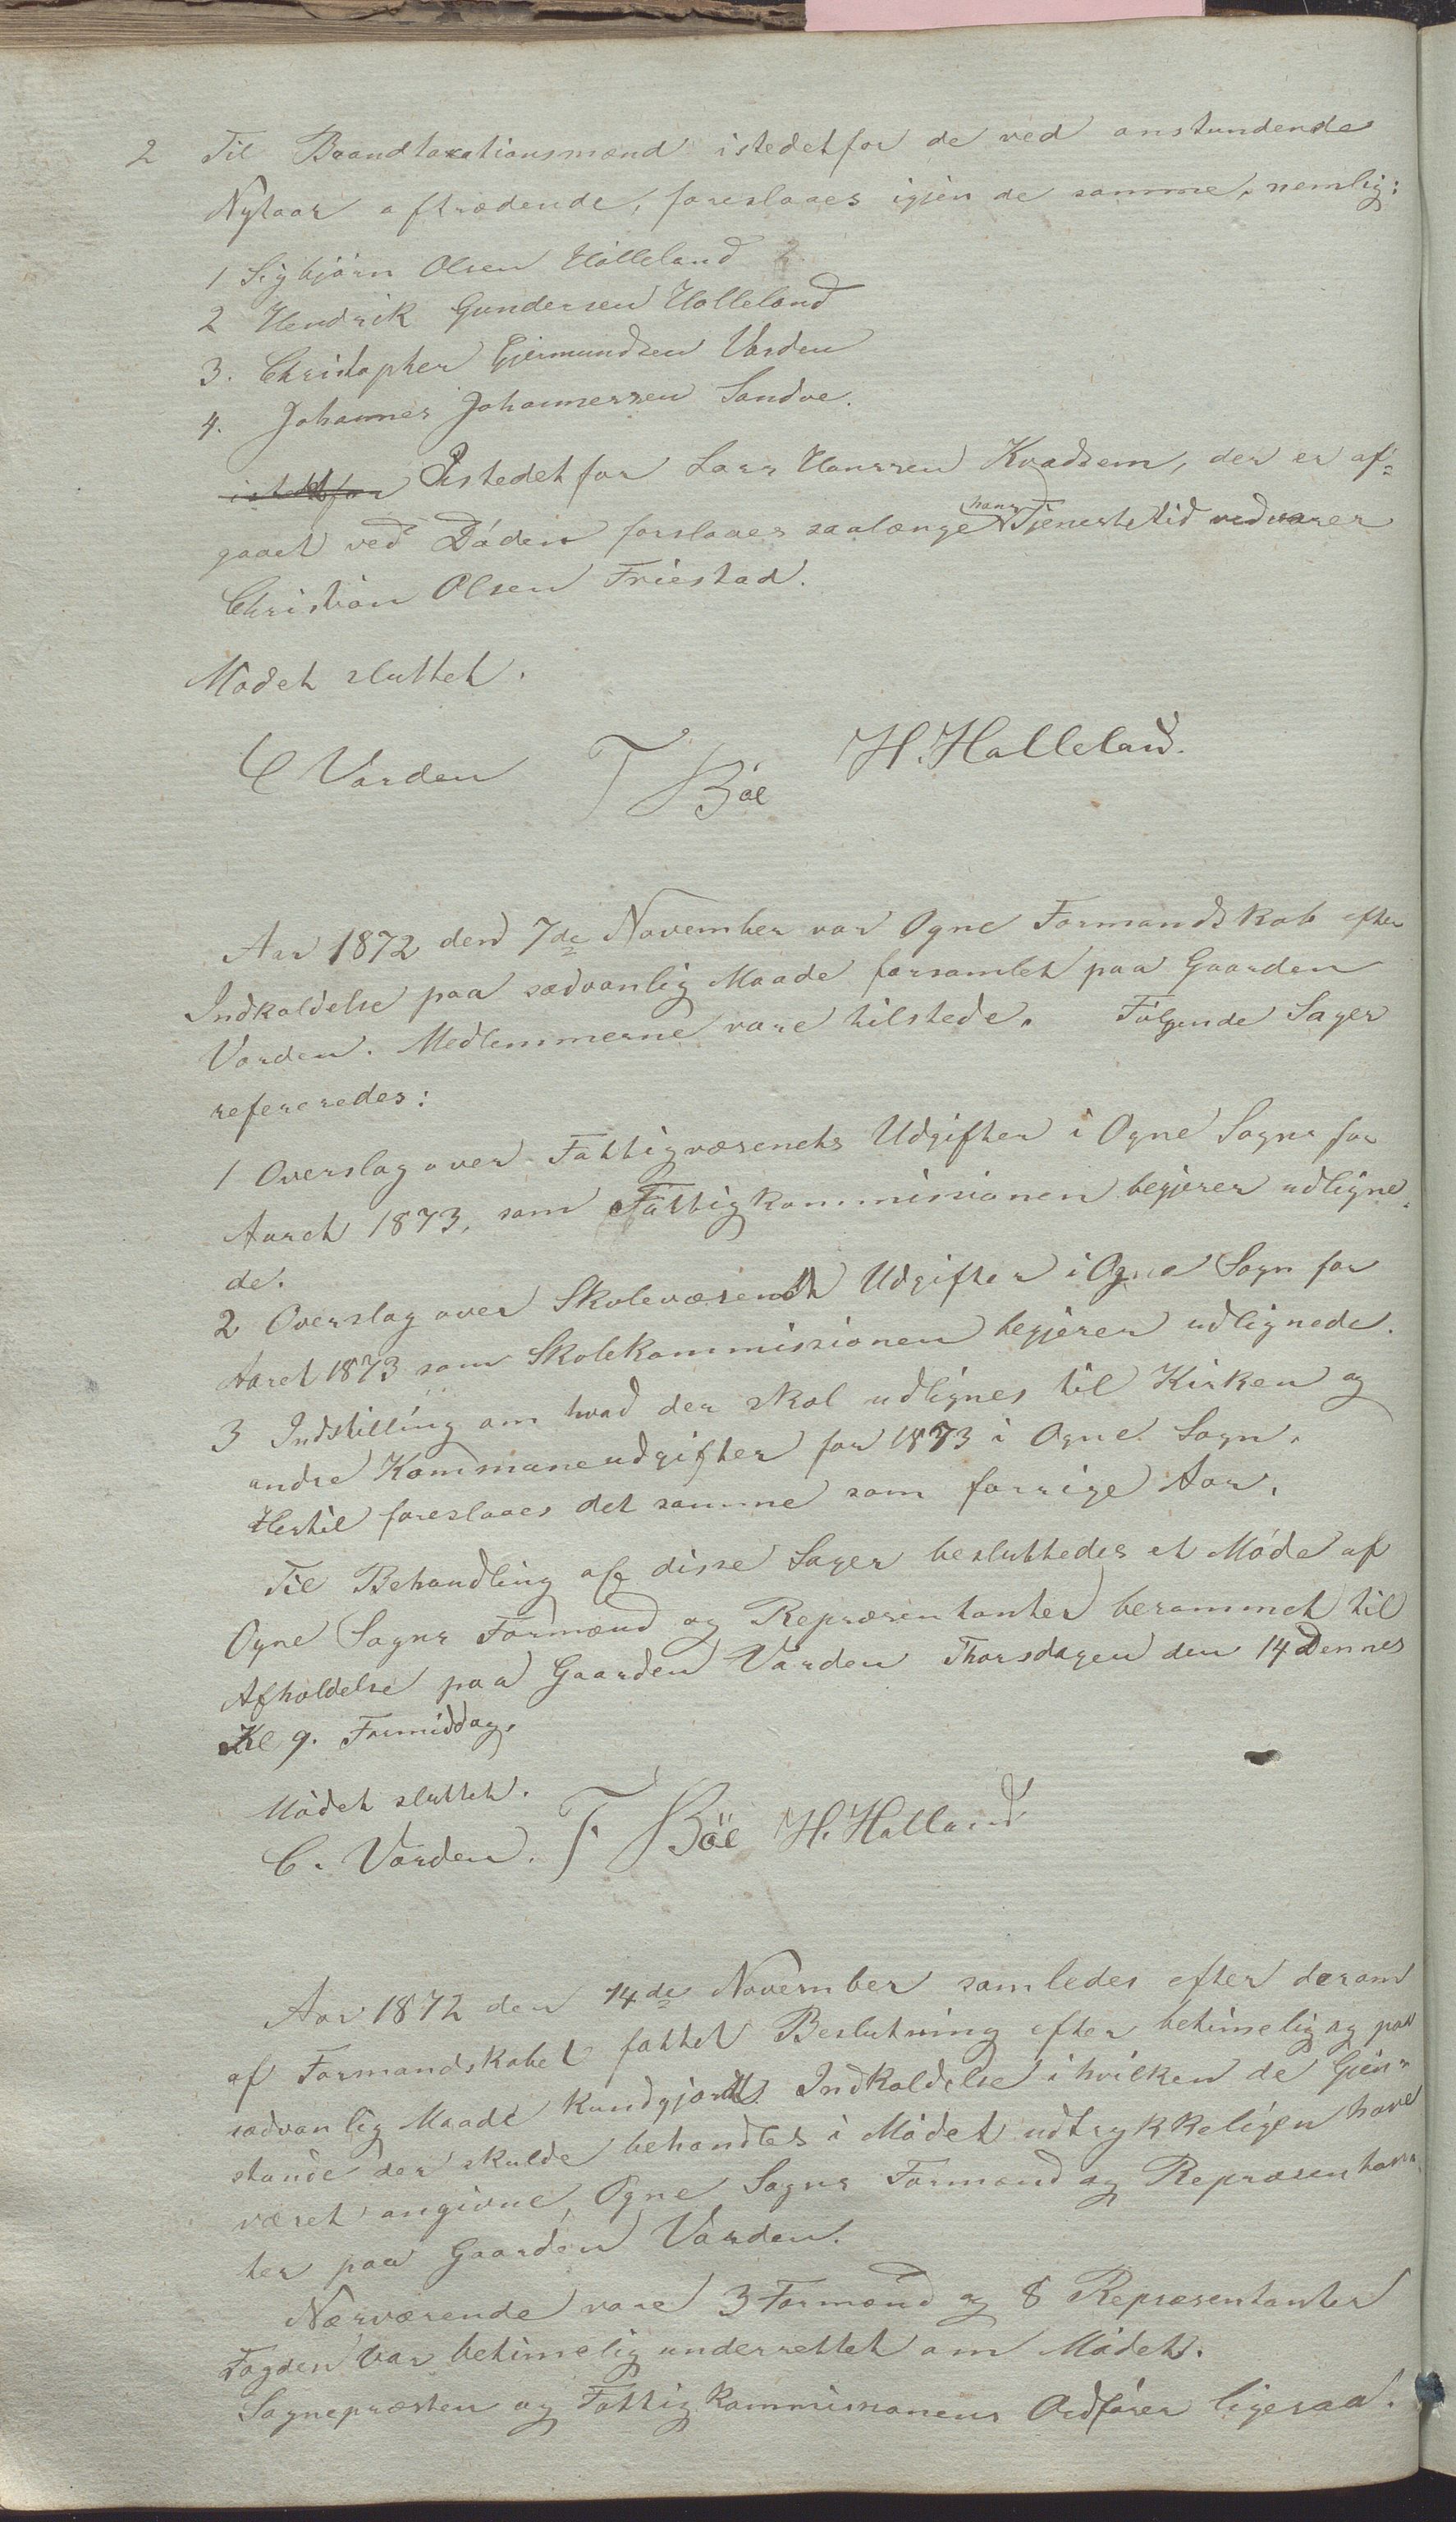 2 Til Brandtaxationsmænd istedetfor de ved anstundende
Nytaar aftrædende, foreslaaes igjen de samme, nemlig:
1 Sigbjörn Olsen Hölleland
2 Hendrik Gundersen Holleland
3. Christopher Gjermundsen Varden
4. Johannes Johannessen Sandve.
istedetfor Istedetfor Lars Hanssen Kvadsem, der er af=
gaaet ved Döden forslaaes saalænge hans Tjenestetid vedvarer
Christian Olsen Friestad.
Mödet sluttet.
C Varden T Böe H. Halleland.
Aar 1872 den 7de November var Ogne Formandskab efter
Indkaldelse paa sædvanlig Maade forsamlet paa Gaarden
Varden. Medlemmerne vare tilstede. Fölgende Sager
refereredes:
1 Overslag over Fattigvæsenets Udgifter i Ogne Sogn for
Aaret 1873, som Fattigkommissionen begjerer udligne=
de.
2 Overslag over Skolevæsenets Udgifter i Ogne Sogn for
Aaret 1873 som Skolekommissionen begjerer udlignede.
3 Indstilling om hvad der skal udlignes til Kirken og
andre Kommuneudgifter for 1873 i Ogne Sogn.
Hertil foreslaaes det samme som forrige Aar.
Til Behandling af disse Sager besluttedes et Möde af
Ogne Sogns Formænd og Repræsentanter berammet til
Afholdelse paa Gaarden Varden Thorsdagen den 14 Dennes
Kl 9. Formiddag.
Mödet sluttet.
C. Varden. T. Böe H. Halland
Aar 1872 den 14de November samledes efter derom
af Formandskabet fattet Beslutning efter betimelig og paa
sædvanlig Maade kundgjordt Indkaldelse i hvilken de Gjen=
stande der skulde behandles i Mödet udtrykkeligen have
været angivne, Ogne Sogns Formænd og Repræsentan=
ter paa Gaarden Varden.
Nærværende vare 3 Formænd og 8 Repræsentanter
Fogden var betimelig underrettet om Mödet.
Sognepræsten og Fattigkommissionens Ordförer ligesaa.